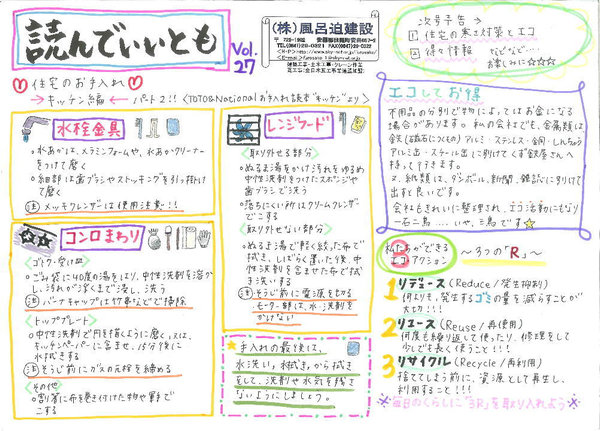 読んでいいとも
Vol.27
(株)風呂迫建設
次号予告→
1 住宅の寒さ対策とエコ
2 得々情報 などなど…
お楽しみに☆☆☆
住宅のお手入れ
→キッチン編← パート2!!〈TOTO&Nationalお手入れ読本"キッチン"より〉
水栓金具
○水あかは、メラミンフォームや、水あかクリーナーをつけて磨く
○細部は歯ブラシやストッキングを引っ掛けて磨く
注 メッククレンザーは使用注意!!
コンロまわり
〈ゴトク・受け皿〉
○ごみ袋に40度の湯をはり、中性洗剤を溶かし、汚れが浮くまで浸し、洗う
注 バーナキャップは竹串などで掃除
〈トッププレート〉
○中性洗剤で円を描くように磨く。
キッチンペーパーに含ませ、パック後に水拭きする
注 そうじ前にガスの元栓を締める
〈その他〉
○割箸に布を巻き付けた物や軍手でこする
レンジフード
〈取り外せる部分〉
○ぬるま湯をかけ汚れをゆるめ
中性洗剤をつけたスポンジや
歯ブラシで洗う
○落ちにくい所はクリームクレンザーで
こする
〈取り外せない部分〉
○ぬるま湯で軽く絞った布で
拭き、しばらく置いた後、中
性洗剤を含ませた布で拭
き洗いする
注 そうじ前に電源を切る
モーター部は、水・洗剤を
かけない
★手入れの最後は、
水洗い、水拭き、から拭き
をして、洗剤や水気を残さ
ないようにしましょう。
エコしてお得
不用品の分別で物によってはお金になる
場合があります。私の会社でも、金属類は
鉄(磁石につくもの)・アルミ・ステンレス・銅・しんちゅう
アルミ缶・スチール缶に別けてくず鉄屋さんへ
持って行きます。
又、紙類は、ダンボール、新聞、雑誌に別けて
出すと良いです。
会社もきれいに整理され、エコ活動にもなり
一石二鳥……いや、三鳥です☆
私たちができる
エコアクション
～3つの「R」～
1 リデュース(Reduce/発生抑制)
何よりも、発生するゴミの量を減らすことが
大切!!!
2 リユース(Reuse/再使用)
何度も繰り返して使ったり、修理をして
少しでも長く使うこと!!!
3 リサイクル(Recycle/再利用)
捨ててしまう前に、資源として再生し、
利用すること!!!
※毎日のくらしに"3R"を取り入れよう※